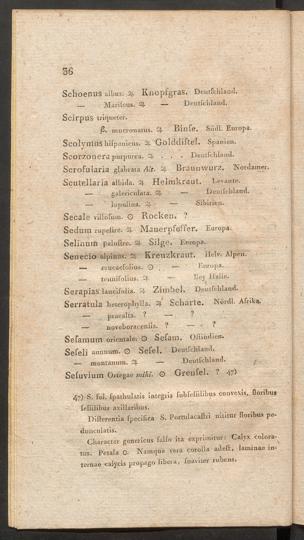 36
Schoenus albus. ♃ Knopſgras. Deutſchland.
— Mariſcus. ♃ — Deutſchland.
Scirpus triqueter.
β. mucronatus. ♃ Binſe. Südl. Europa.
Scolymus hiſpanicus. ♃ Golddiſtel. Spanien.
Scorzonera purpurea. ♃ . . . Deutſchland.
Scrofularia glabrata Ait. ♃ Braunwurz. Nordamer.
Scutellaria albida. ♃ Helmkraut. Levante.
— galericulata. ♃ — Deutſchland.
— lupulina. ♃ — Sibirien.
Secale villoſum. ⊙ Rocken. ?
Sedum rupeſtre. ♃ Mauerpfeffer. Europa.
Selinum paluſtre. ♃ Silge. Europa.
Senecio alpinus. ♃ Kreuzkraut. Helv. Alpen.
— erucaefolius. ⊙ — Europa.
— tenuifolius. ♃ — Bey Halle.
Serapias lancifolia. ♃ Zimbel. Deutſchland.
Serratula heterophylla. ♃ Scharte. Nördl. Afrika.
— praealta. ? — ?
— noveboracenſis. ? — ?
Seſamum orientale. ⊙ Seſam. Oſtindien.
Seſeli annuum. ⊙ Seſel. Deutſchland.
— montanum. ♃ — Deutſchland.
Seſuvium Ortegae mihi. ⊙ Grenſel. ? 47)
47) S. fol. ſpathulatis integris ſubſeſſilibus convexis, floribus
ſeſſilibus axillaribus.
Differentia ſpecifica S. Portulacaſtri nititur floribus pe-
dunculatis.
Character genericus falſo ita exprimitur: Calyx colora-
tus. Petala 0. Namque vera corolla adeſt, laminae in-
ternae calycis propago libera, ſuaviter rubens.